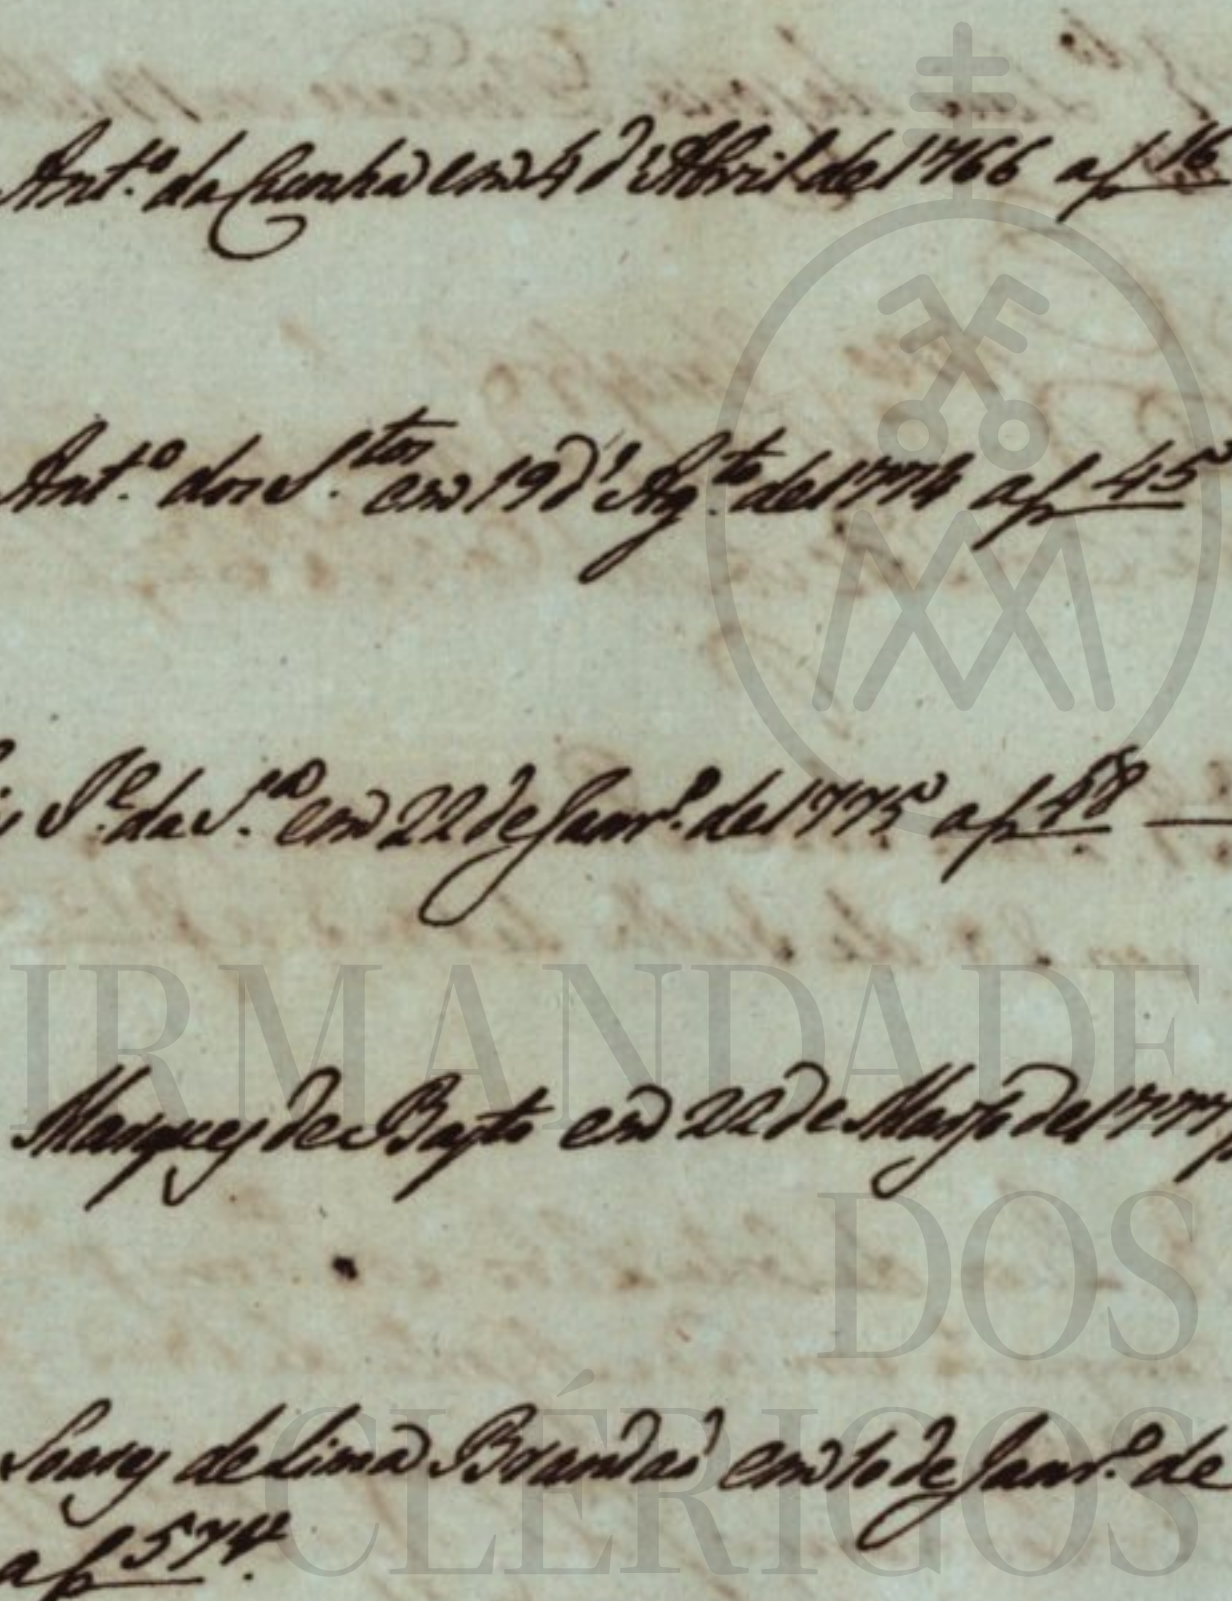 Ant.º da Cunha em 4 d'Abril de 1766 a f 16
Ant.º dos S.tos em 19 d'Ag.to de 1774 a f 45
S.e da S.a em 22 de Janr.º de 1775 a f 48
Marques de Basto em 22 de Março de 1777
Soares de Lima Brandaõ em 10 de Janr.º de
a f 574.
IRMANDADE
DOS
CLÉRIGOS